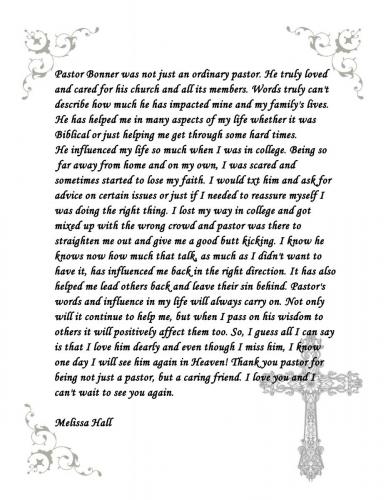 Pastor Bonner was not just an ordinary pastor. He truly loved
and cared for his church and all its members. Words truly can't
describe how much he has impacted mine and my family's lives.
He has helped me in many aspects of my life whether it was
Biblical or just helping me get through some hard times.
He influenced my life so much when I was in college. Being so
far away from home and on my own, I was scared and
sometimes started to lose my faith. I would txt him and ask for
advice on certain issues or just if I needed to reassure myself I
was doing the right thing. I lost my way in college and got
mixed up with the wrong crowd and pastor was there to
straighten me out and give me a good butt kicking. I know he
knows now how much that talk, as much as I didn't want to
have it, has influenced me back in the right direction. It has also
helped me lead others back and leave their sin behind. Pastor's
words and influence in my life will always carry on. Not only
will it continue to help me, but when I pass on his wisdom to
others it will positively affect them too. So, I guess all I can say
is that I love him dearly and even though I miss him, I know
one day I will see him again in Heaven! Thank you pastor for
being not just a pastor, but a caring friend. I love you and I
can't wait to see you again.
Melissa Hall